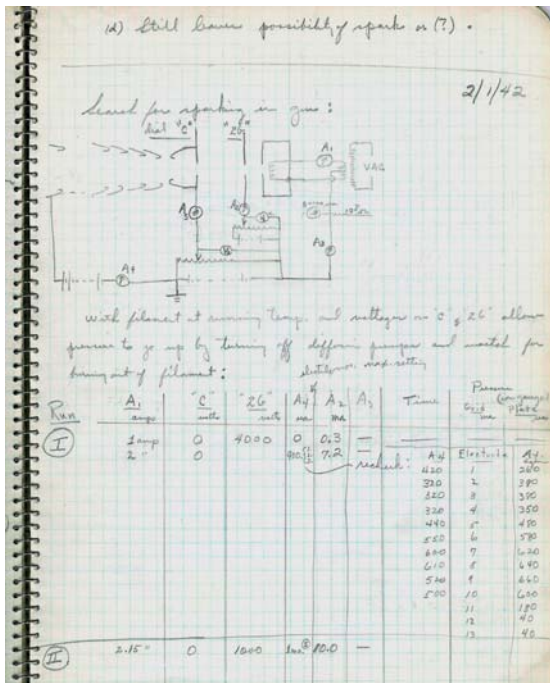 (2) Still leaves possibility of sparks or (?).
2/1/42
Search for sparking in gun:
dial "C" "2G"
A1
VAC
A3
A2
A4
With filament at running temp. and voltages on "C" & 2G allow
pressure to go up by turning off diffusion pumps and watch for
burning out of filament:
max. setting
Run A1 amps "C" volts "2G" volts A4 ma A2 ma A3 Time Pressure (ion gauge) Grid ma Plate
I 1 amp 0 4000 0 0.3 —
2 " 0 7.2 — recheck: A4 Electrode A4
420 1 260
320 2 380
320 3 350
320 4 350
440 5 450
550 6 590
600 7 620
610 8 640
520 9 660
500 10 600
11 180
12 40
13 40
II 2.15 " 0 1000 10.0 —